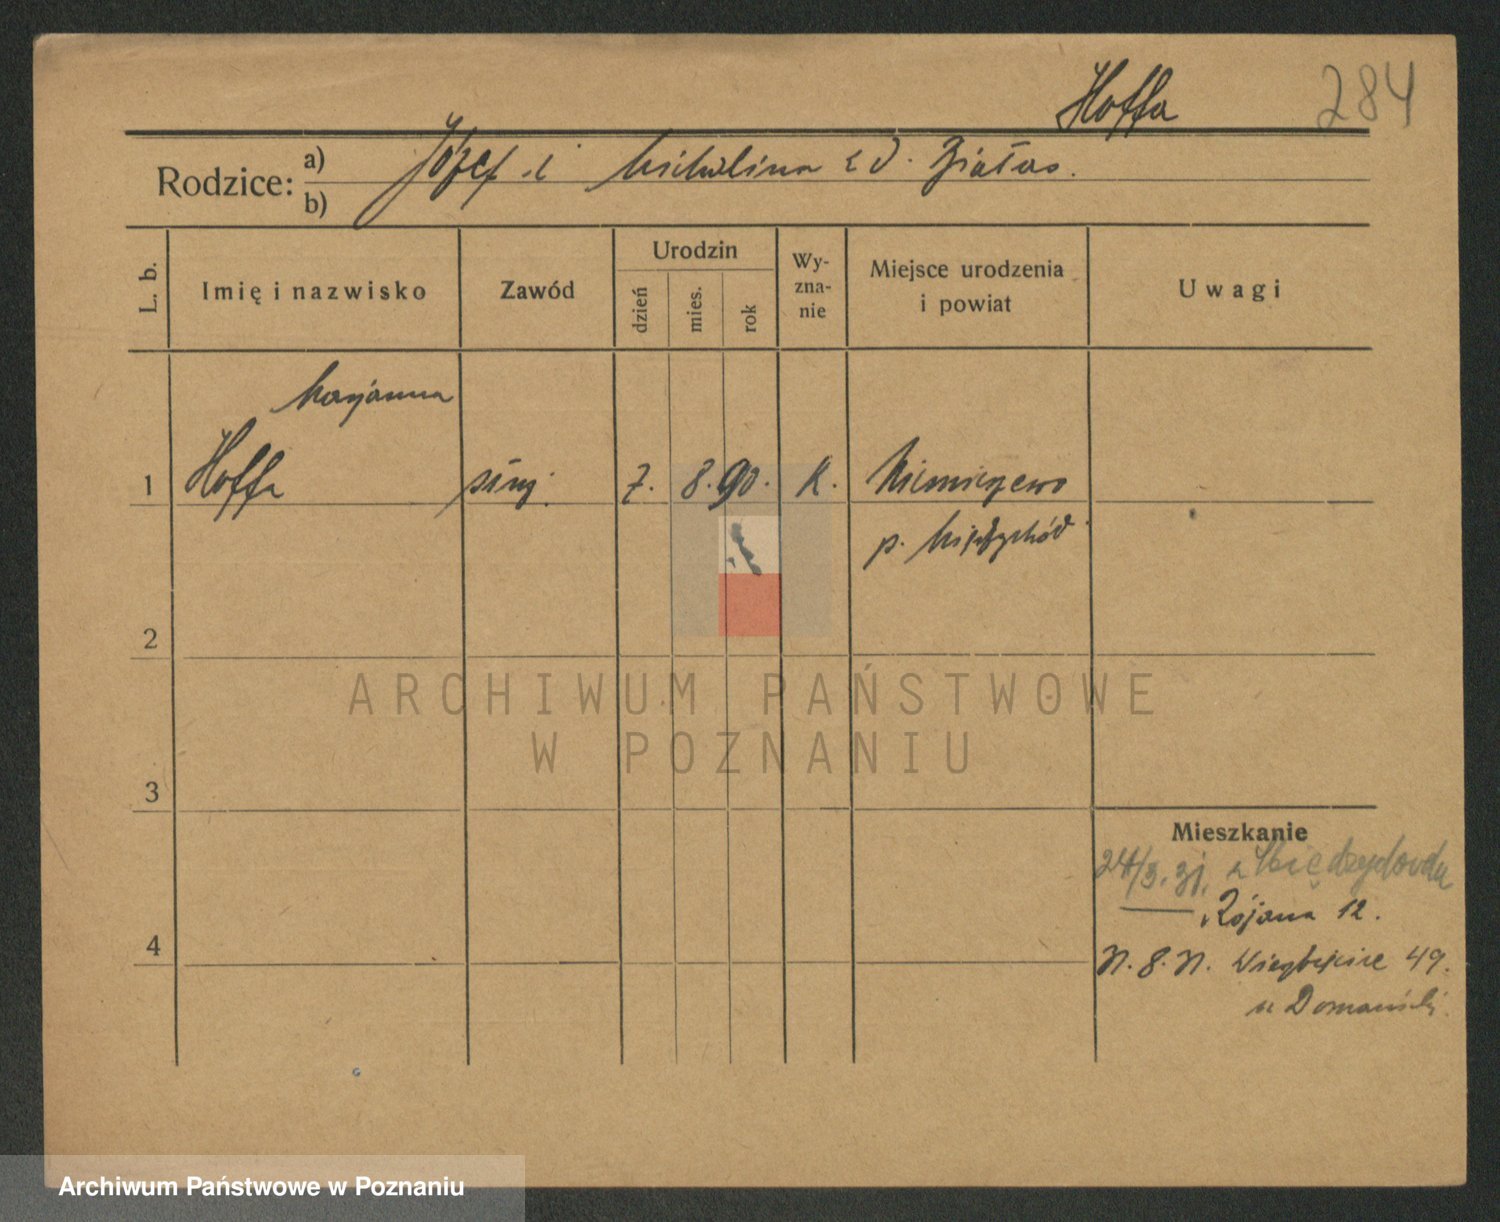 Hoffa 284
Rodzice: a) Józef i Michalina z d. Białas.
b)
L. b.
Imię i nazwisko
Zawód
Urodzin
dzień
mies.
rok
Wy-
zna-
nie
Miejsce urodzenia
i powiat
Uwagi
Marjanna
1 Hoffa służ. 7. 8. 90. K. Niemierzewo
p. Międzychód
2
ARCHIWUM PAŃSTWOWE
W POZNANIU
3
Mieszkanie
24/3. 31. z Międzychodu
Różana 12.
4
N. 8. N. 49.
u Domański
Archiwum Państwowe w Poznaniu